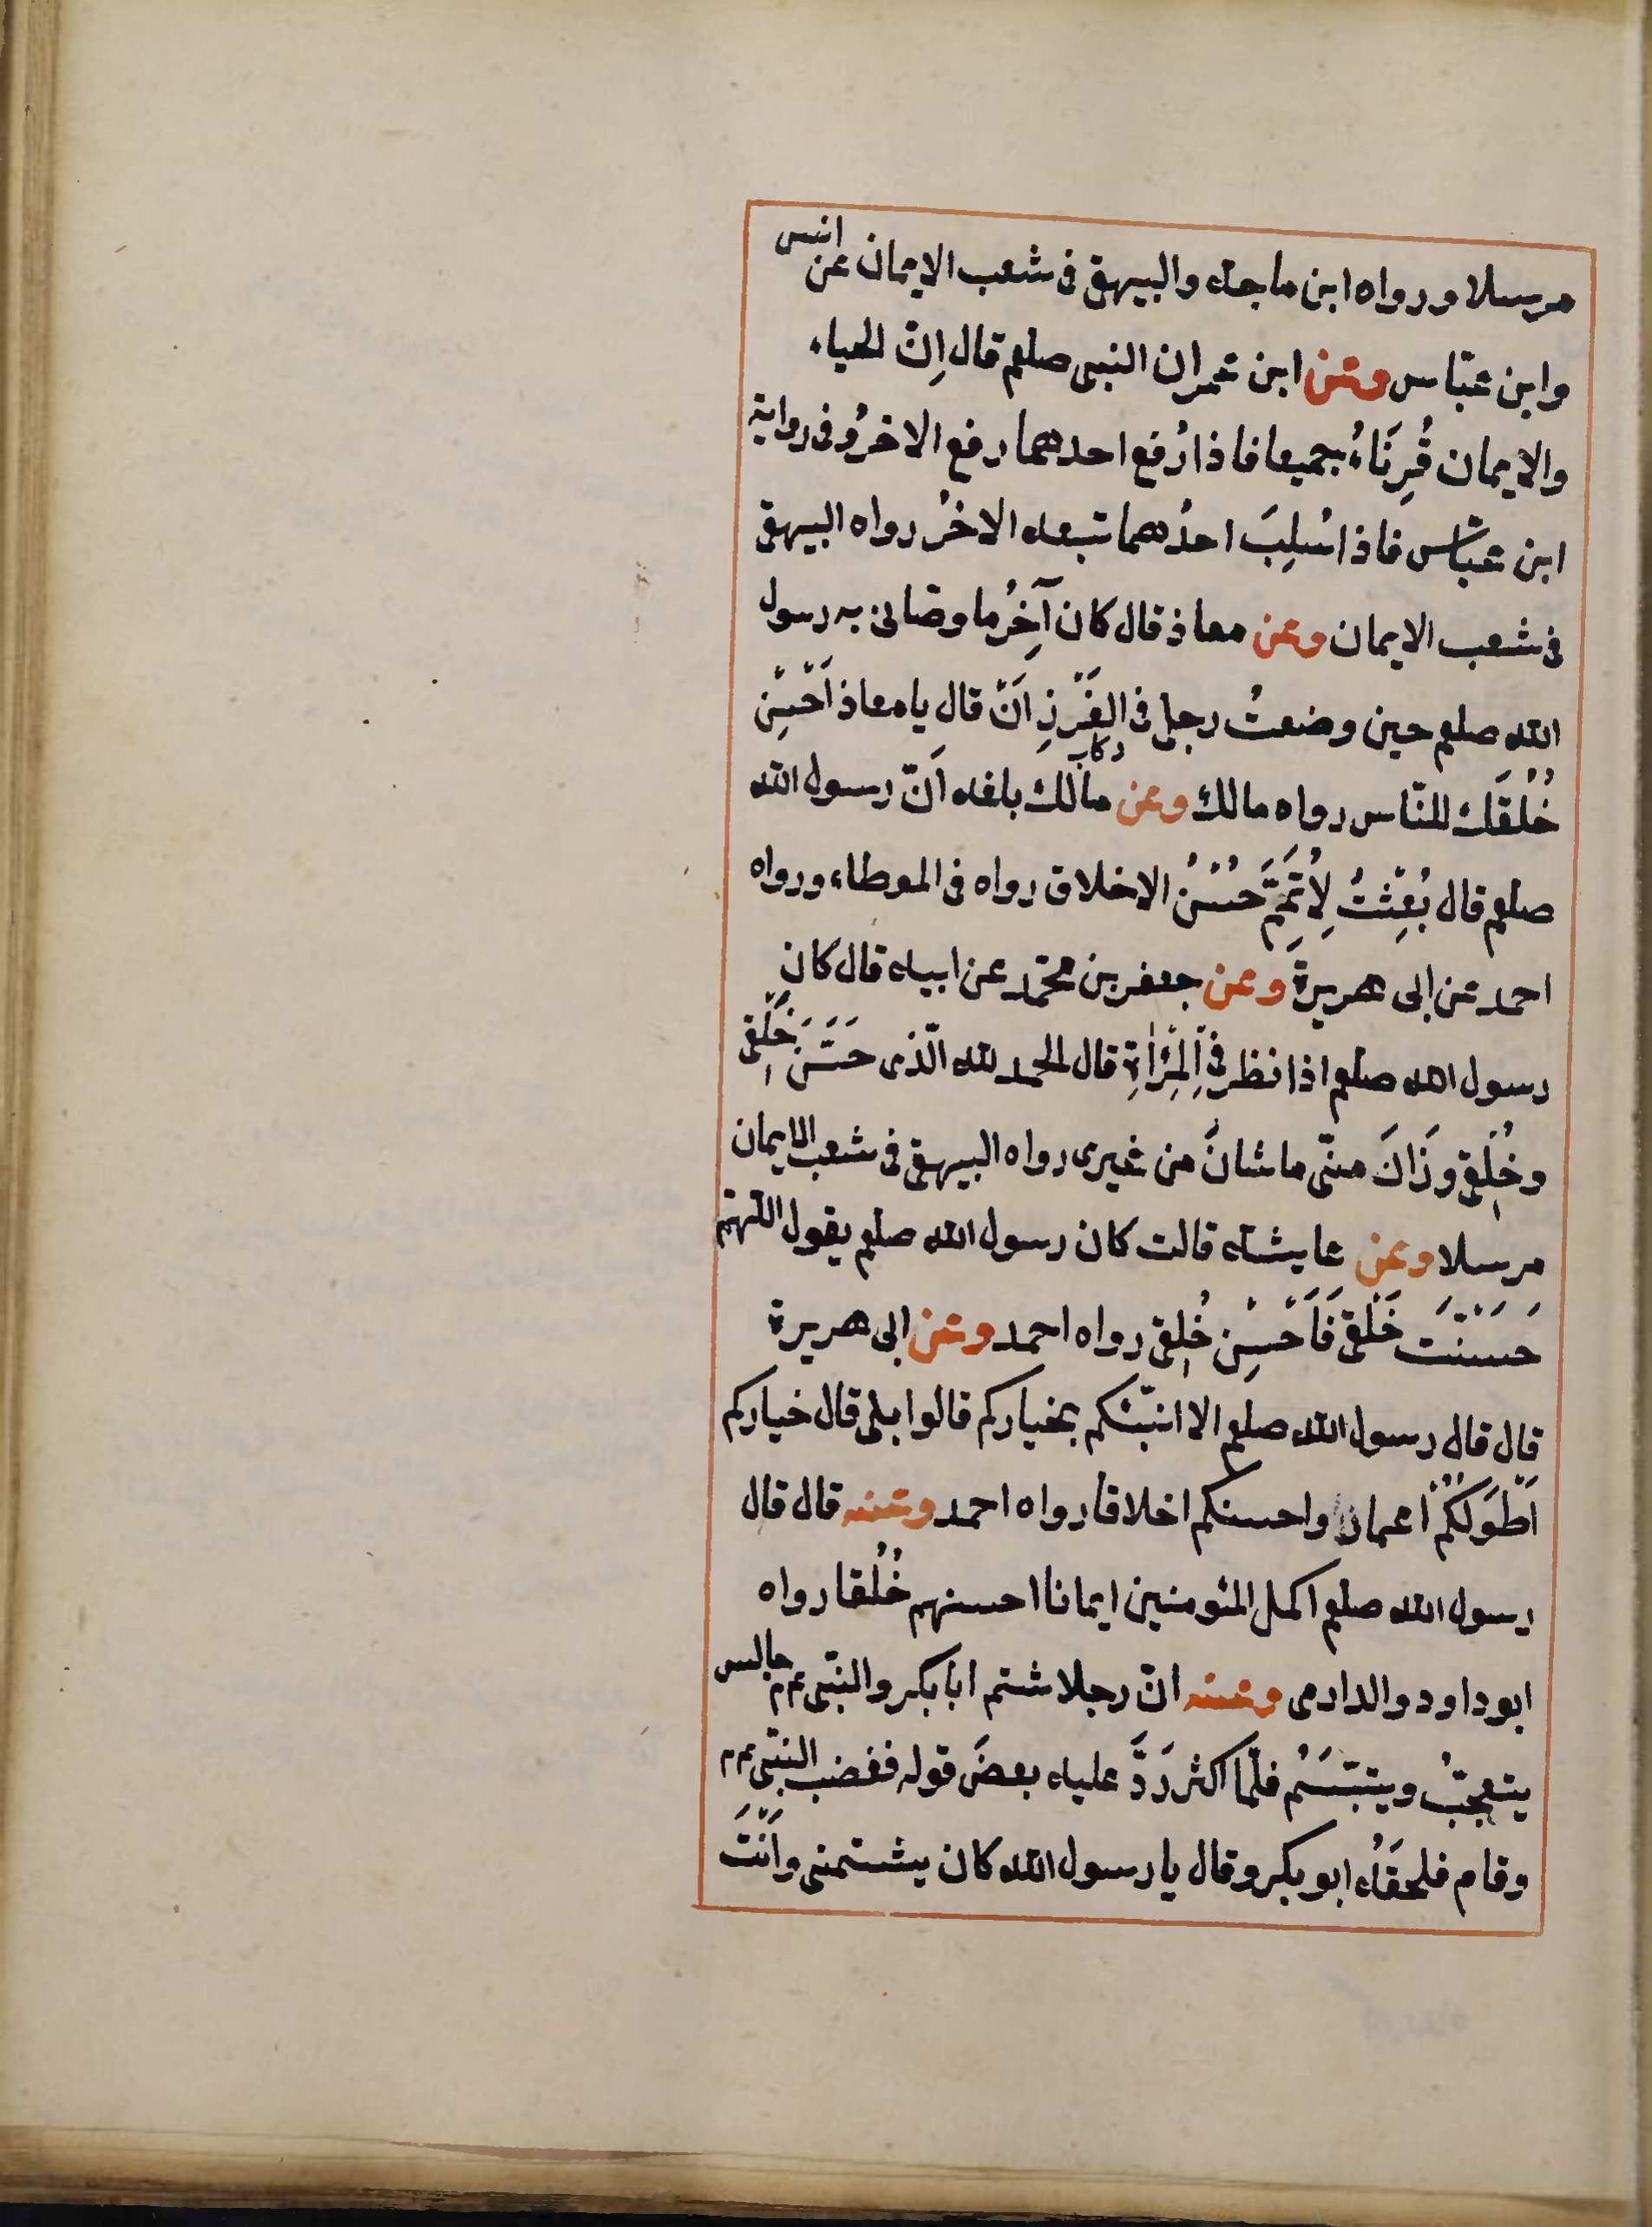 مرسلا ورواه ابن ماجه والبيهقى فى شعب الايمان عن انس
وابن عبّاس وعن ابن عمر ان النبى صلعم قال اِنّ الحياء
والايمان قُرِنَاءُ جميعا فاذا رُفع احدهما رفع الاخرُ وفى رواية
ابن عبّاس فاذا سُلِبَ احدُهما تبعه الاخرُ رواه البيهقى
فى شعب الايمان وعن معاذ قال كان آخِرُ ما وصّانى به رسول
الله صلعم حين وضعتُ رجلى فى الغَرْزِ اَنْ قال يا معاذ اَحْسِنْ
ركاب
خُلُقَك للنّاس رواه مالك وعن مالك بلغه اَنّ رسول الله
صلعم قال بُعِثْتُ لِاُتَمِّمَ حُسْنَُ الاخلاق رواه فى الموطاء ورواه
احمد عن ابى هريرة وعن جعفر بن محمّد عن ابيه قال كان
رسول الله صلعم اذا نظر فى اَلْمِرْاٰةِ قال الحمد لله الّذى حَسَّنَ خَلْقِى
وخُلُقِى وزَانَ منّى ما شانَ من غيرى رواه البيهقى فى شعب الايمان
مرسلا وعن عايشة قالت كان رسول الله صلعم يقول اللّهمّ
حَسَّنْتَ خَلْقى فَاَحْسِنْ خُلُقِى رواه احمد وعن ابى هريرة
قال قال رسول الله صلعم الا انبّئكم بخياركم قالوا بلى قال خياركم
اَطْوَلُكُمْ اعمارا واحسنكم اخلاقا رواه احمد وعنه قال قال
رسول الله صلعم اكمل المئومنين ايمانا احسنهم خُلُقا رواه
ابو داود والدارمى وعنه انّ رجلا شتم ابا بكر والنبّى عم جالس
يتعجّبُ ويتبّسَمُ فلمّا اكثر رَدَّ عليه بعضَ قوله فغضب النبّى عم
وقام فلحقَهُ ابو بكر وقال يا رسول الله كان يشتمنى واَنْتَ